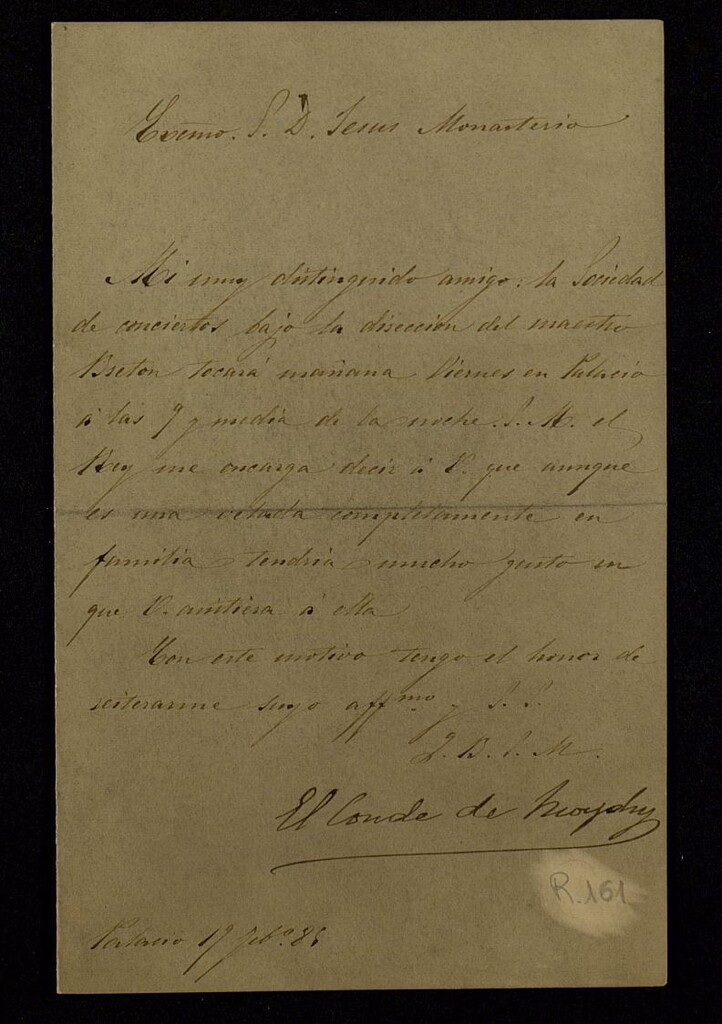 Excmo. S. D. Jesus Monasterio
Mi muy distinguido amigo: la Sociedad
de conciertos bajo la direccion del maestro
Breton tocará mañana Viernes en Palacio
á las 9 y media de la noche. S. M. el
Rey me encarga decir á V. que aunque
es una velada completamente en
familia tendria mucho gusto en
que V. asistiera á ella
Con este motivo tengo el honor de
reiterarme suyo affmo y S. S.
Q. B. S. M.
El Conde de Morphy
R.161
Palacio 19 Febo. 85